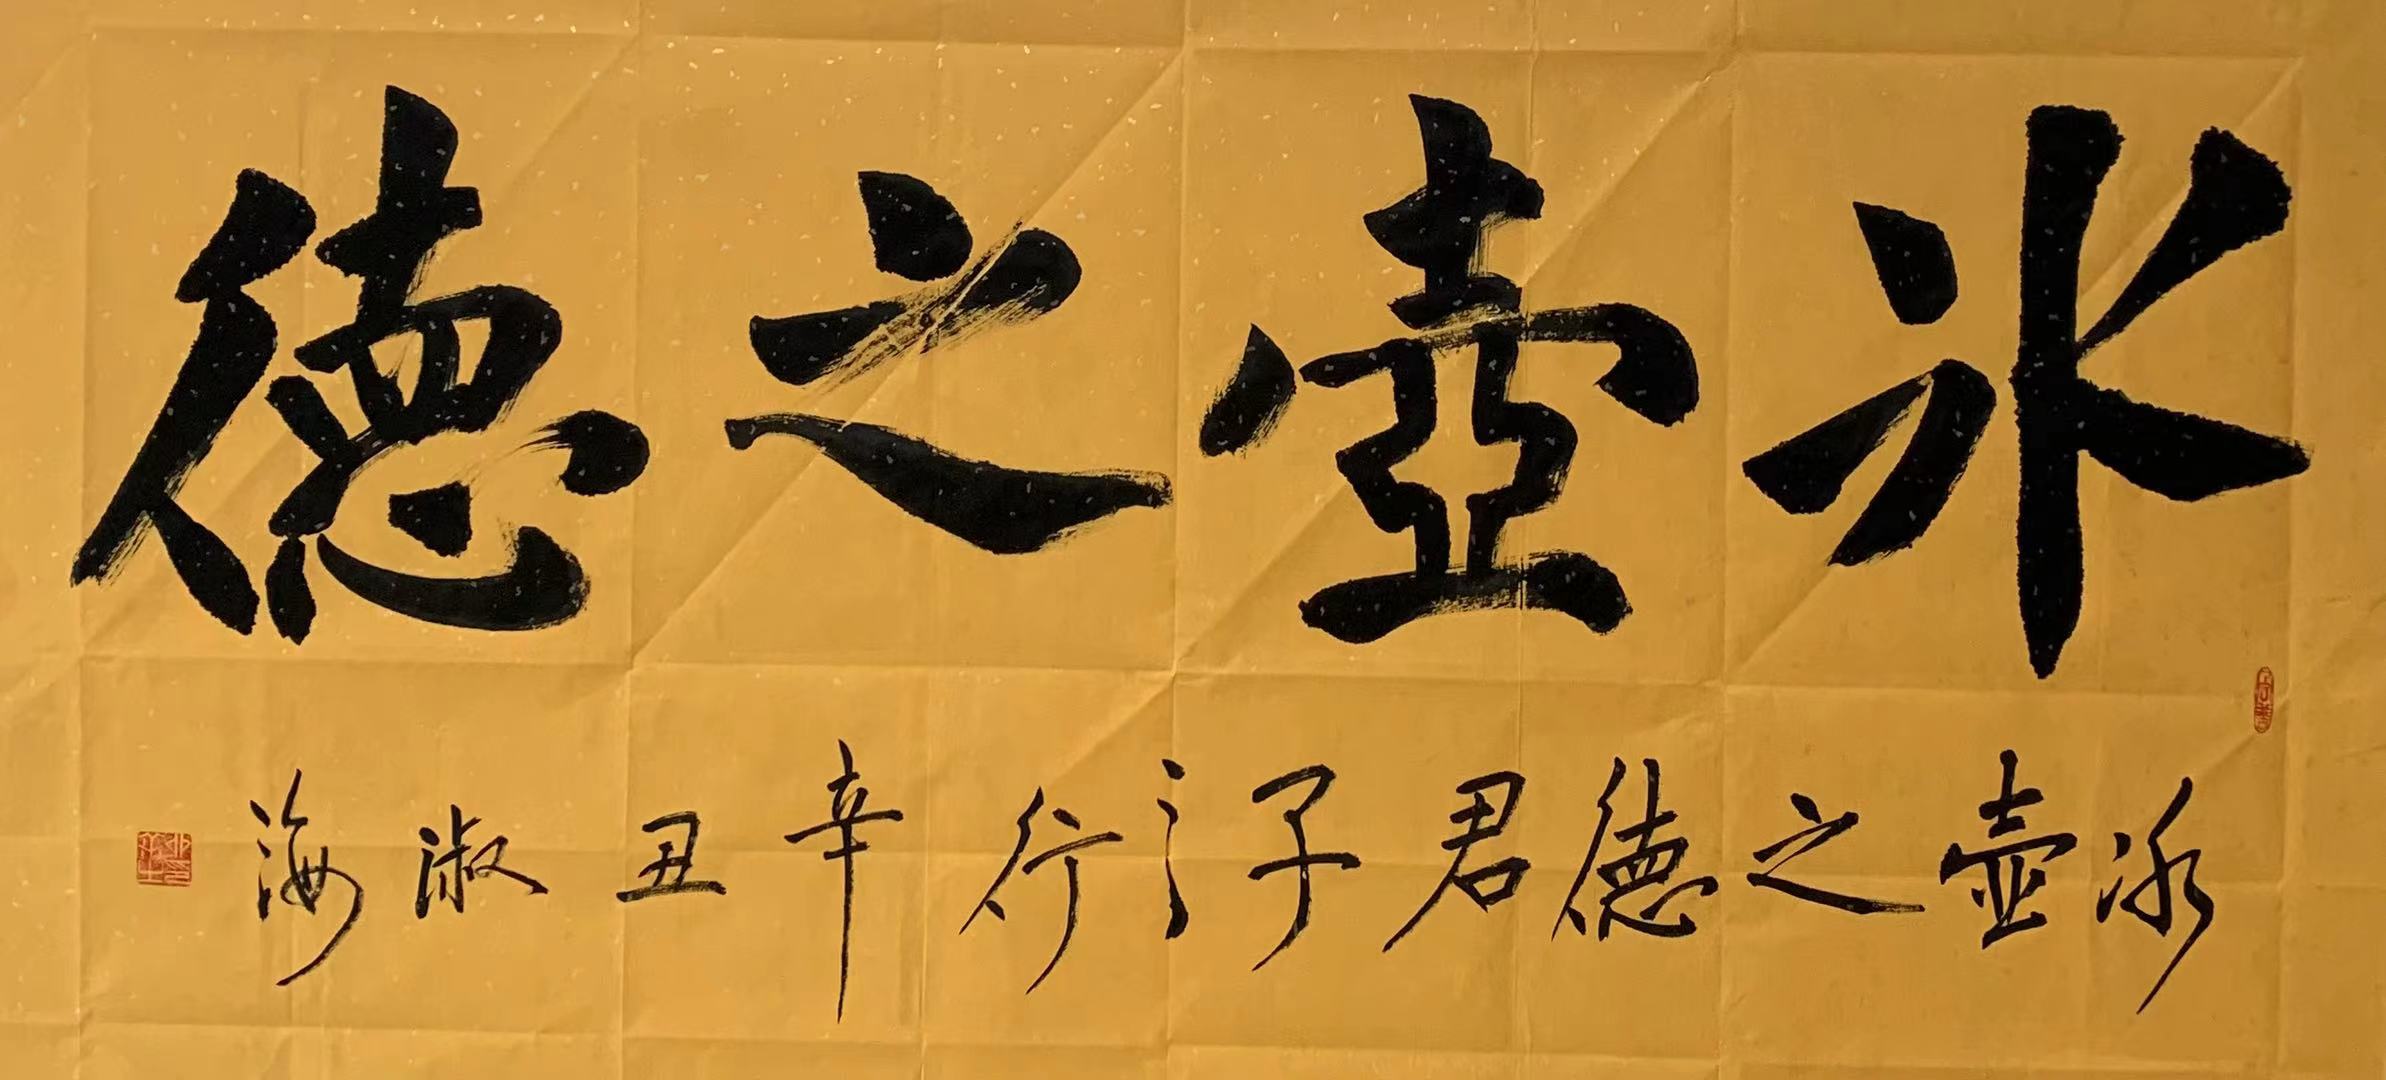 冰壶之德
冰壶之德君子之行辛丑淑海